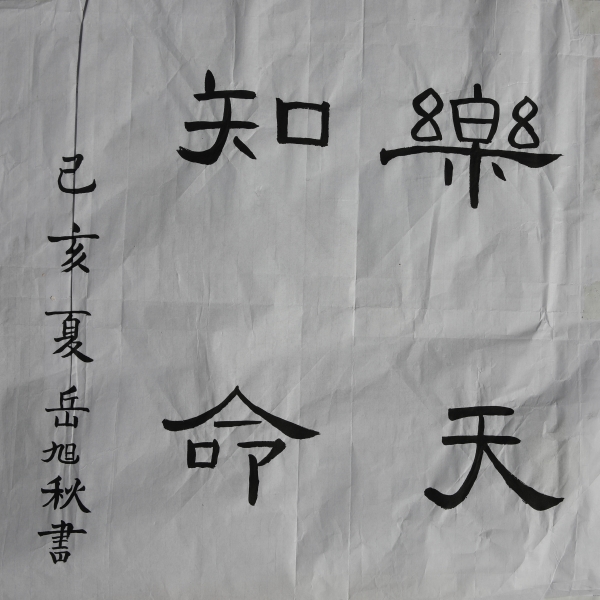 樂天
知命
己亥夏岳旭秋書